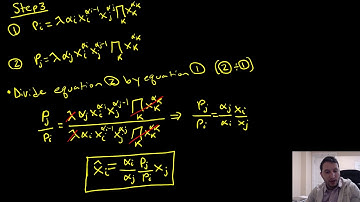 Step 3
① Pᵢ = λ αᵢ xᵢ^(αᵢ-1) xⱼ^(αⱼ) ∏_K x_K^(α_K)
② Pⱼ = λ αⱼ xᵢ^(αᵢ) xⱼ^(αⱼ-1) ∏_K x_K^(α_K)
• Divide equation ② by equation ① (②÷①)
Pⱼ/Pᵢ = λ αⱼ xᵢ^(αᵢ) xⱼ^(αⱼ-1) ∏_K x_K^(α_K) / λ αᵢ xᵢ^(αᵢ-1) xⱼ^(αⱼ) ∏_K x_K^(α_K) ⇒ Pⱼ/Pᵢ = αⱼ/αᵢ xᵢ/xⱼ
x̂ᵢ = αᵢ/αⱼ Pⱼ/Pᵢ xⱼ